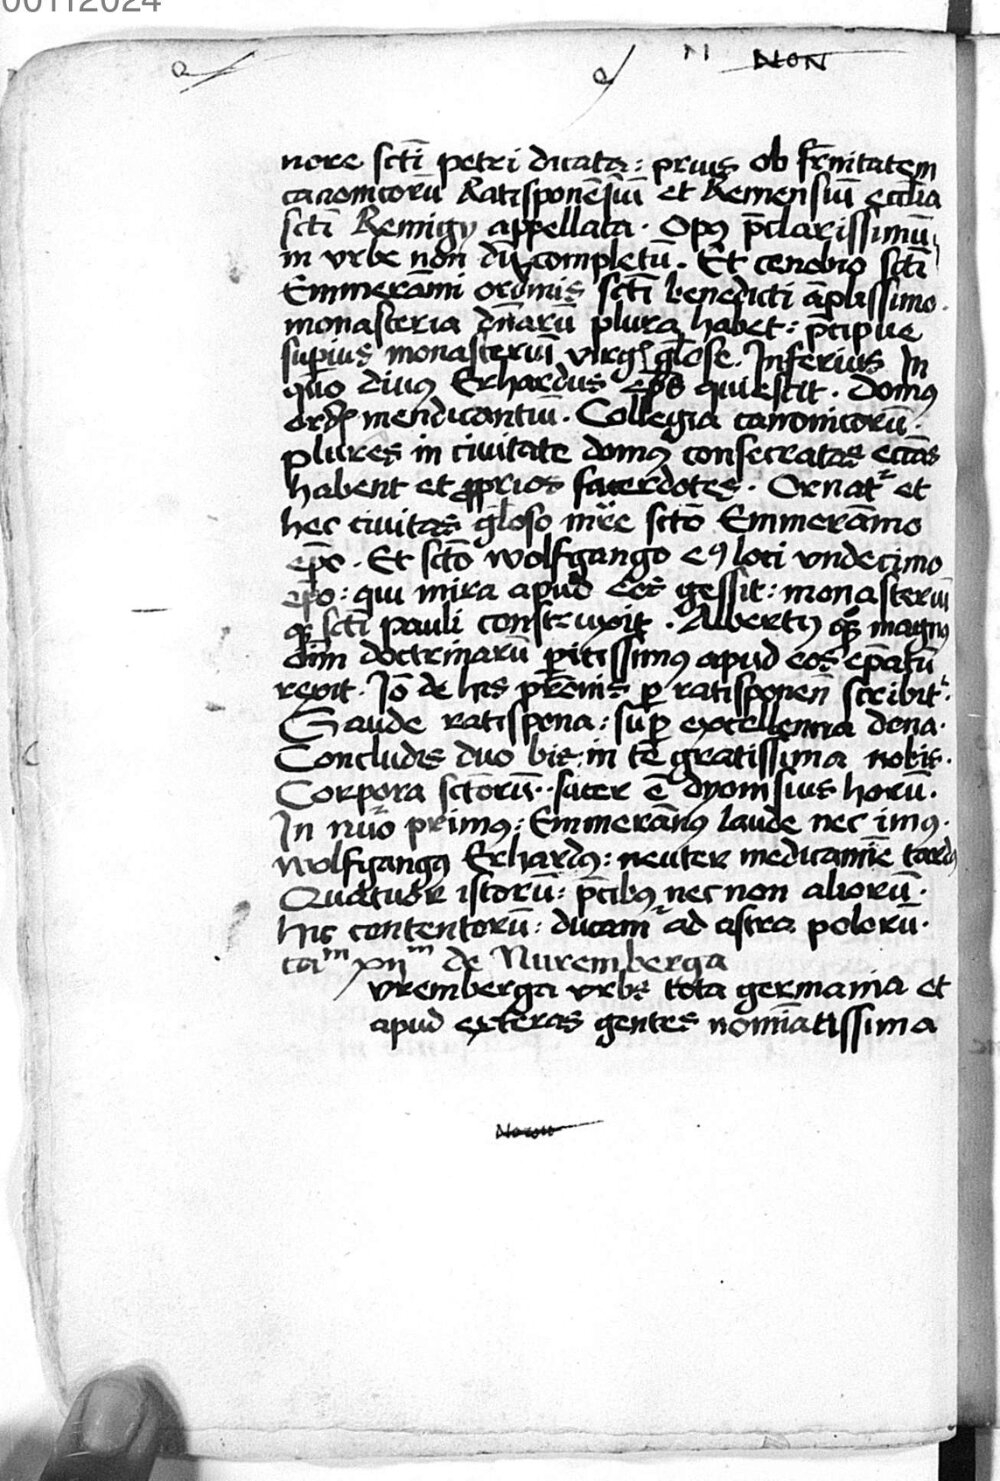 00112024
NON
nore sctī petri dicata : prius ob fr̄nitatem
canonicorū Ratisponēsiū et Remensiū ecclīa
sctī Remigy appellata . Opꝰ p̄clarissimū
in vrbe non dū completū . Et cenobio sctī
Emmerāmi ordinis sctī benedicti āplissimo .
monasteria dn̄arū plura habet : p̄cipue
supius monasteriū virgī gl̄ose . Inferius In
quo diuꝰ Erhardus ep̄s quiescit . Domꝰ
ord mendicantiū . Collegia canonicorū .
plures in ciuitate domꝰ consecratas ecc̄as
habent et ꝓprios sacerdotes . Ornatr et
hec ciuitas gl̄oso mr̄e sctō Emmerāmo
ep̄o . Et sctō wolfgango eꝰ loci vndecimo
ep̄o : qui mira apud eos gessit : monasteriū
qꝫ sctī pauli construxit . Albertꝰ qꝫ magnꝰ
oīm doctrinarū pitissimꝰ apud eos ep̄atū
rexit . Iō de his p̄remis p ratisponen̄ scribitr .
Gaude ratispona : sup excellentia dona .
Concludis duo bis : in te gratissima nobis .
Corpora sctōrū . sacer ē dyonisius horū .
In nūo primꝰ : Emmerāmꝰ laude nec imꝰ .
wolfgangꝰ Erhardꝰ : neuter medicamīe tardꝰ
Quatuor istorū : p̄cibꝰ nec non aliorū .
hic contentorū : ducamr ad astra polorū .
ca͞m xii͞m de Nuremberga
vremberga vrbs tota germania et
apud exteras gentes nomīatissima